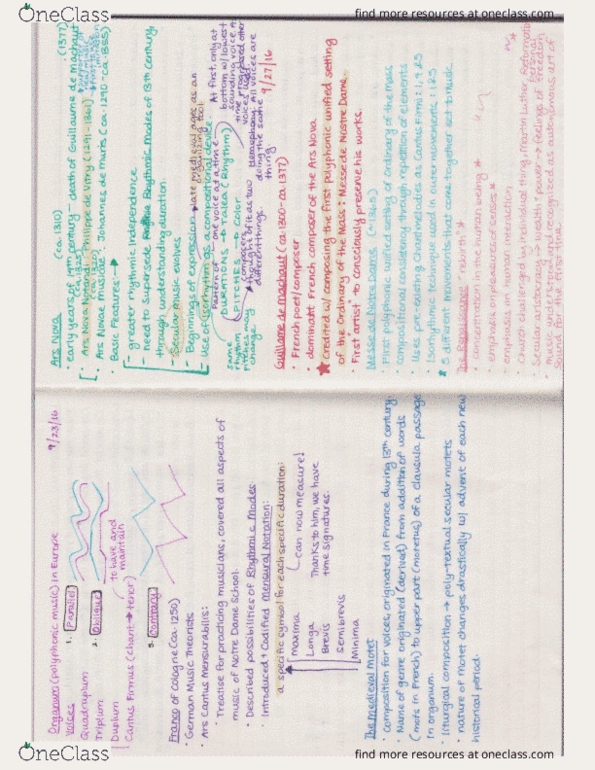 OneClass
find more resources at oneclass.com
Organum (polyphonic music) in Europe 9/23/16
Voices
Quadruplum
Triplum
Duplum
Cantus Firmus (chant → tenor)
to have and
maintain
1. Parallel
2. Oblique
3. Contrary
Franco of Cologne (ca. 1250)
• German Music Theorists
• Ars Cantus Mensurabilis:
• Treatise for practicing musicians, covered all aspects of
music of Notre Dame School.
• Described possibilities of Rhythmic Modes
• Introduced & Codified Mensural Notation:
a specific symbol for each specific duration:
Maxima
Longa
Brevis
semibrevis
Minima
can now measure!
Thanks to him, we have
time signatures.
The Medieval Motet
• composition for voices, originated in France during 13th century
• Name of genre originated (derived) from addition of words
(mots in French) to upper part (motetus) of a clausula passage
in organum.
• liturgical composition → poly-textual secular motets
• nature of motet changes drastically w/ advent of each new
historical period.
Ars Nova (ca. 1310) (1377)
• early years of 14th century - death of Guillaume de machaut
• Ars Nova Notandi: Philippe de Vitry (1291-1361)
• Ars Novae musicae: Johannes de muris (ca. 1290-ca. 1355)
• Basic Features:
- greater rhythmic independence
- need to supersede Rhythmic Modes of 13th century,
through understanding duration.
- Secular music evolves
- Beginnings of expression
- Use of isorhythm as a compositional device
late medieval ages as an
organizing tool
Pattern of one voice at a time
DURATIONS → Talea (Rhythm)
PITCHES → Color
same
rhythm,
pitches may
change
composers
thought of it as two
different things.
At first, only at
bottom w/ lowest
sounding voice. A
voices
all voices are
doing the same
thing
9/27/16
Guillaume de machaut (ca. 1300-ca. 1377)
• French poet/composer
• dominant French composer of the Ars Nova
★ credited w/ composing the first polyphonic unified setting
of the Ordinary of the Mass: Messe de Nostre Dame.
• First artist to consciously preserve his works.
Messe de Notre Dame
• First polyphonic unified setting of ordinary of the mass
• compositional consistency through repetition of elements
• Uses pre-existing chant melodies as Cantus Firmus
• Isorhythmic technique used in outer movements
* 5 different movements that come together set to music.
The Renaissance "rebirth"
• concentration on the human being *
• emphasis on pleasures of senses *
• emphasis on human interaction
• church challenged by individual thing: Martin Luther, Reformation
• Secular aristocracy - wealth & power → feelings of freedom
• music understood & recognized as autonomous, art of
sound for the first time.
OneClass
find more resources at oneclass.com